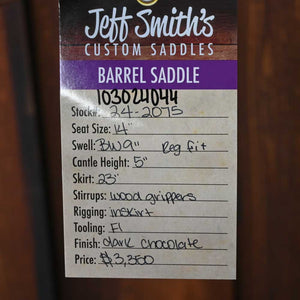 Jeff Smith's
CUSTOM SADDLES
BARREL SADDLE
103024044
Stock#: 24-2075
Seat Size: 14"
Swell: BW9" Reg fit
Cantle Height: 5"
Skirt: 23"
Stirrups: wood grippers
Rigging: inskirt
Tooling: Fl
Finish: dark chocolate
Price: $3,350